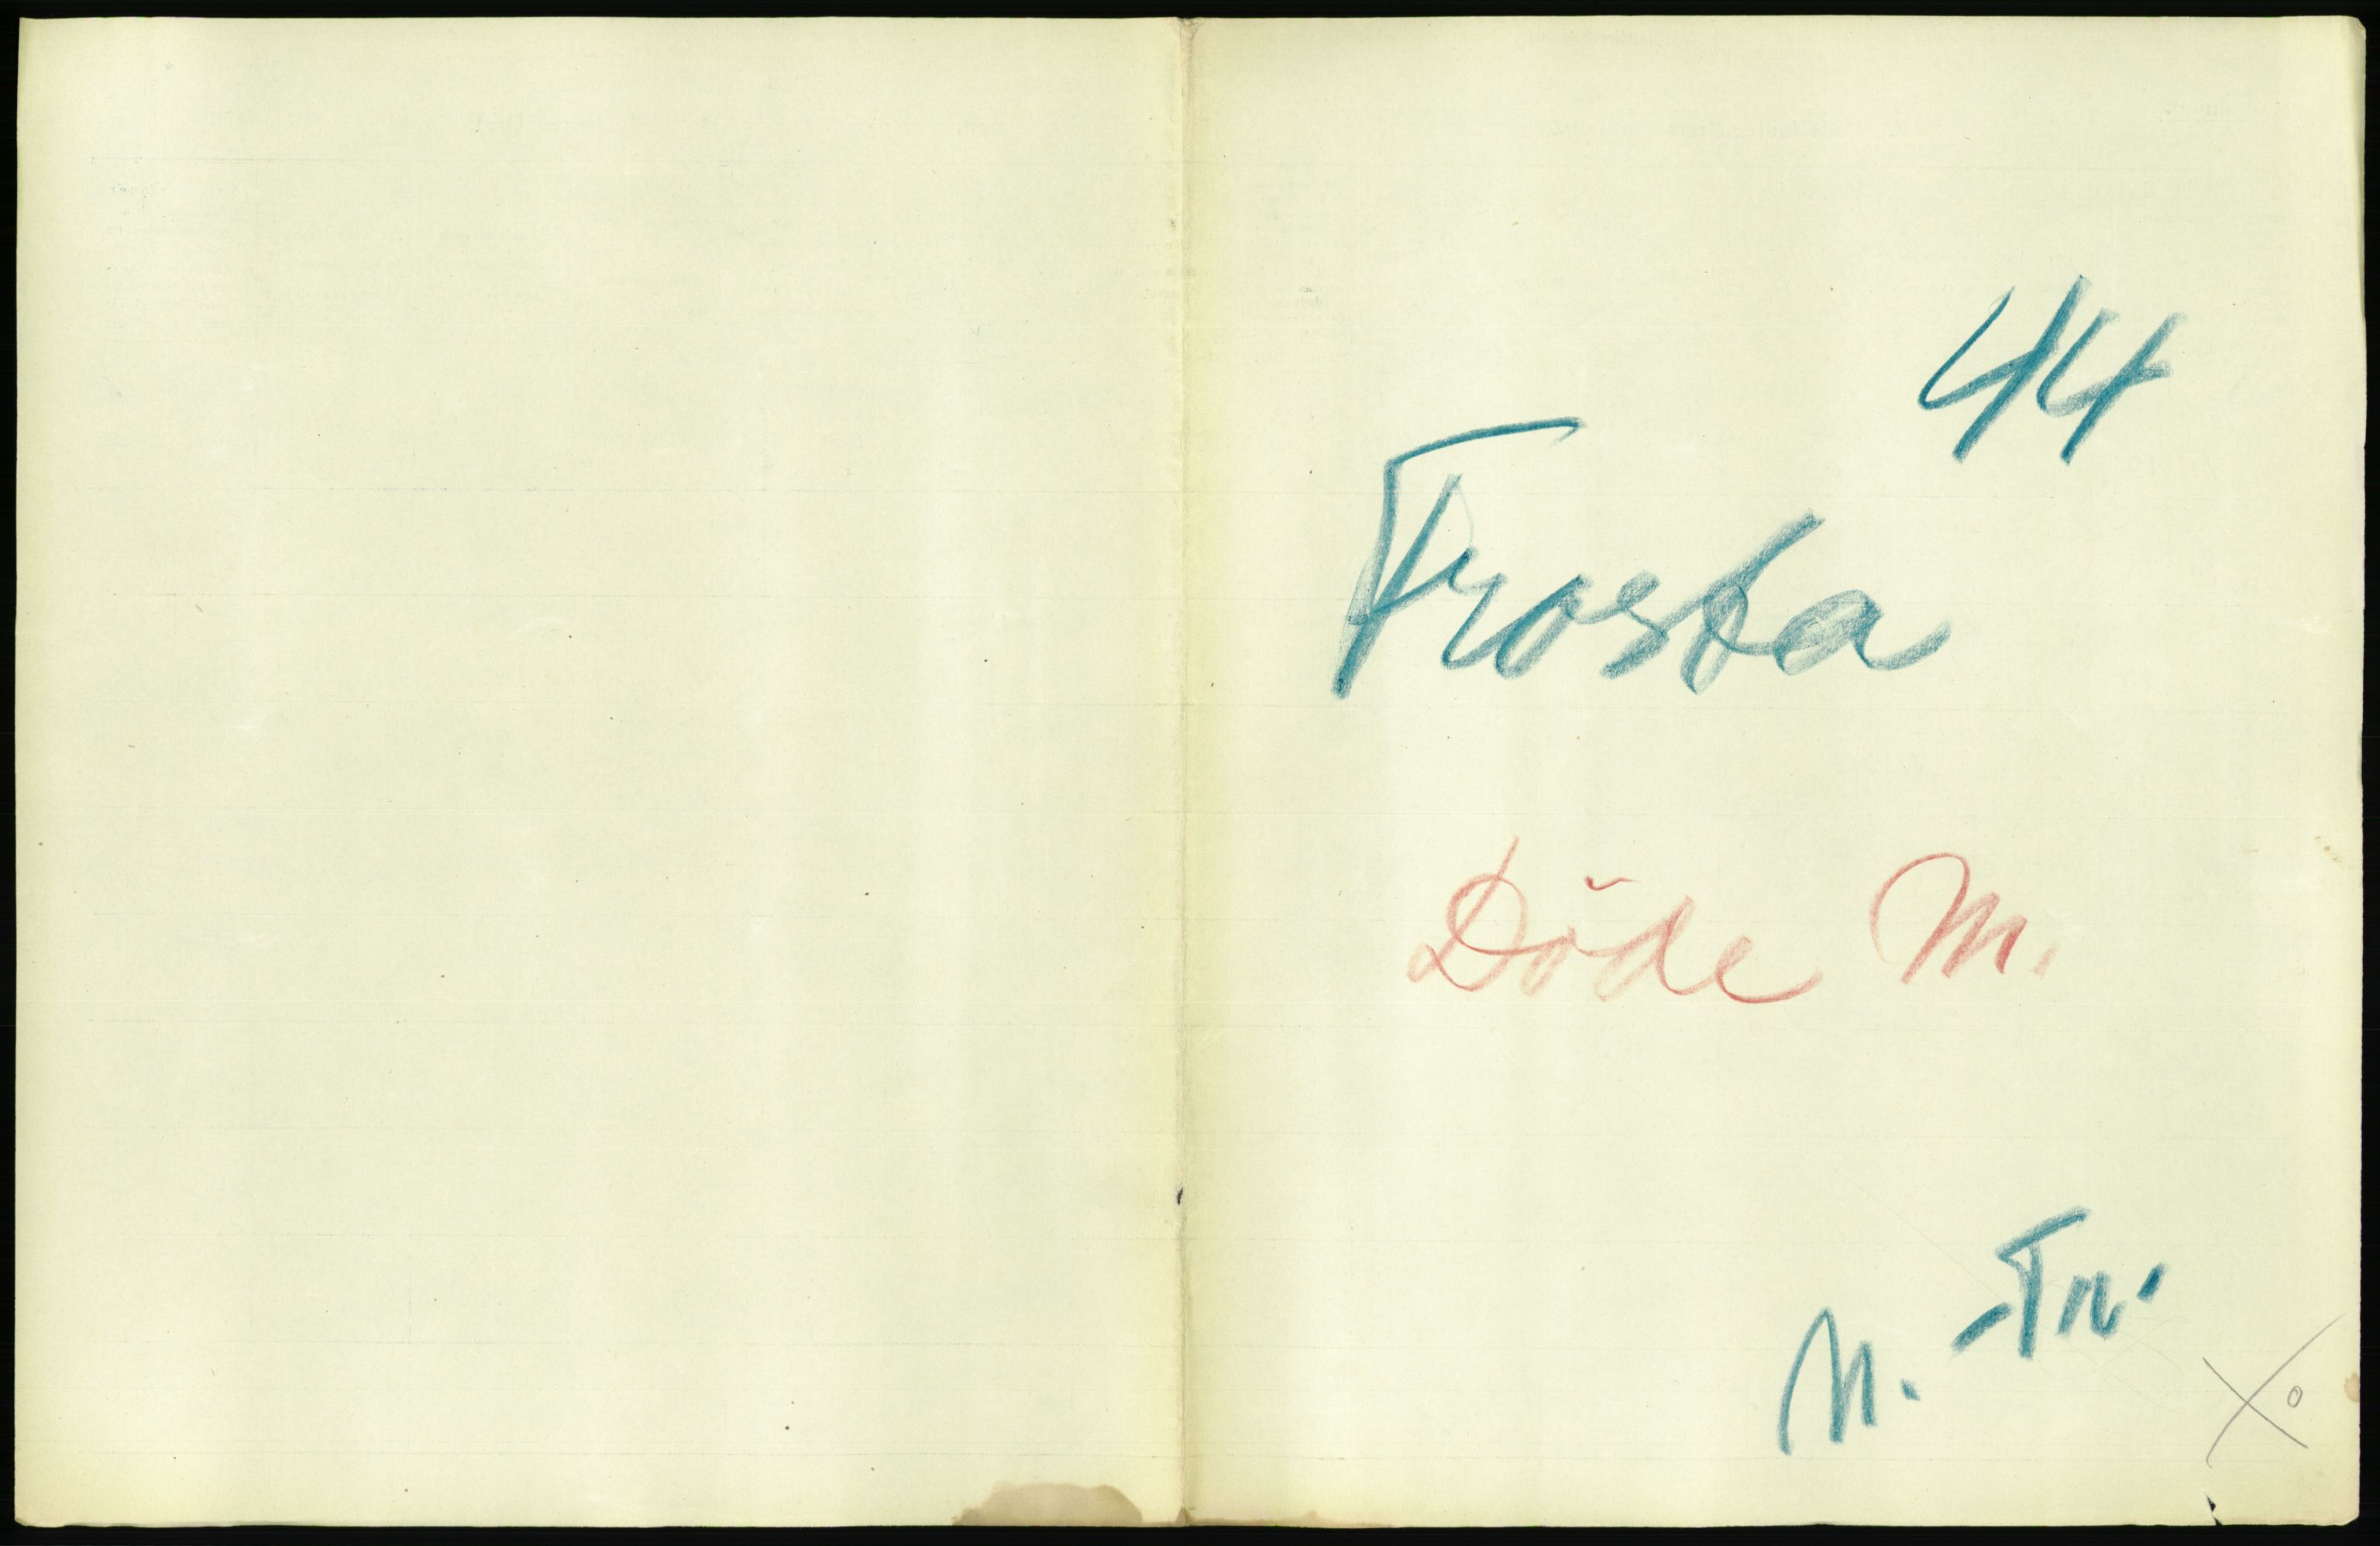 44
Frosta
Döde M.
N.-Tr.
X o